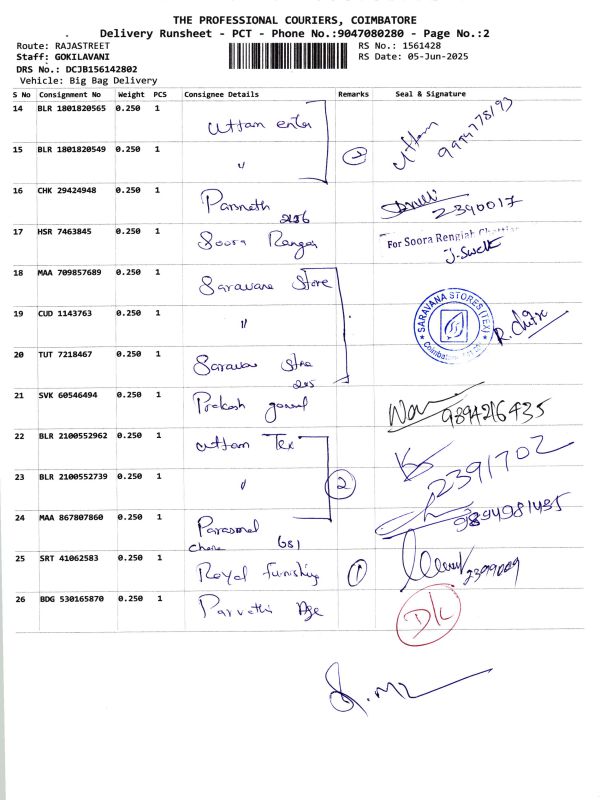 THE PROFESSIONAL COURIERS, COIMBATORE
Delivery Runsheet - PCT - Phone No.:9047080280 - Page No.:2
Route: RAJASTREET
RS No.: 1561428
Staff: GOKILAVANI
RS Date: 05-Jun-2025
DRS No.: DCJB156142802
Vehicle: Big Bag Delivery
S No Consignment No Weight PCS Consignee Details Remarks Seal & Signature
14 BLR 1801820565 0.250 1 Uttam enter Uttam
15 BLR 1801820549 0.250 1 〃
16 CHK 29424948 0.250 1 2390017
17 HSR 7463845 0.250 1 Soora Rengas For Soora Rengiah Chettiar
18 MAA 709857689 0.250 1 Saravana Store
19 CUD 1143763 0.250 1 〃 SARAVANA STORES (TEX)
20 TUT 7218467 0.250 1 Store
21 SVK 60546494 0.250 1 Prakash 9894216435
22 BLR 2100552962 0.250 1 Uttam Tex 2391702
23 BLR 2100552739 0.250 1 〃 2
24 MAA 867807860 0.250 1 681
25 SRT 41062583 0.250 1 Royal furnishing 1
26 BDG 530165870 0.250 1 Parvathi D/L